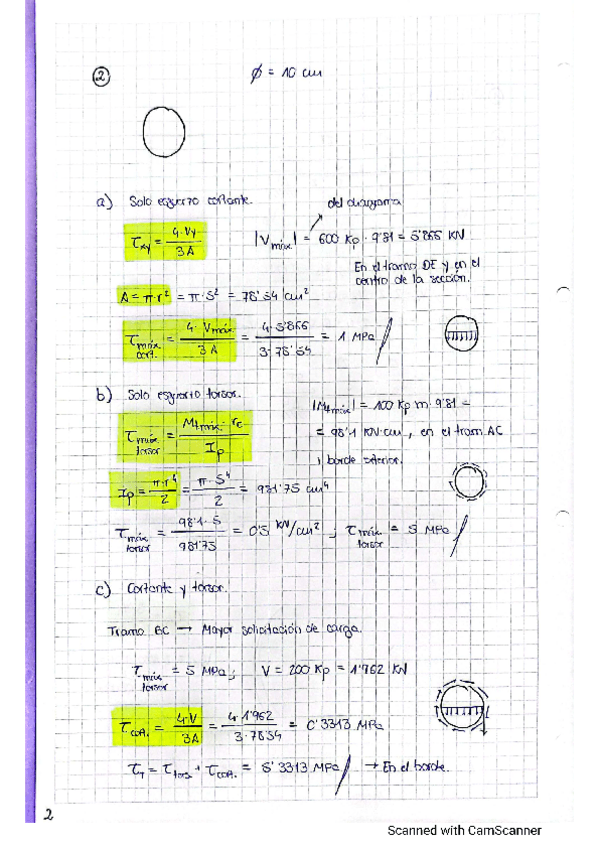 ② ϕ = 10 cm
a) Solo esfuerzo cortante.
del diagrama
τxy = 4·Vy / 3A
|Vmáx| = 600 Kp · 9'81 = 5'866 KN
En el tramo DE y en el
centro de la sección.
A = π·r² = π·5² = 78'54 cm²
τmáx cort. = 4·Vmáx / 3A = 4·5'866 / 3·78'54 = 1 MPa
b) Solo esfuerzo torsor.
|Mtmáx| = 100 Kp m · 9'81 =
= 98'1 KN·cm, en el tram. AC
, borde exterior.
τmáx torsor = Mtmáx · rc / Ip
Ip = π·r⁴ / 2 = π·5⁴ / 2 = 981'75 cm⁴
τmáx torsor = 98'1 · 5 / 981'75 = 0'5 KN/cm² ; τmáx torsor = 5 MPa
c) Cortante y torsor.
Tramo BC → Mayor solicitación de carga.
τmáx torsor = 5 MPa ; V = 200 Kp = 1'962 KN
τcort. = 4·V / 3A = 4·1'962 / 3·78'54 = 0'3313 MPa
τT = τtors + τcort. = 5'3313 MPa → En el borde.
2
Scanned with CamScanner